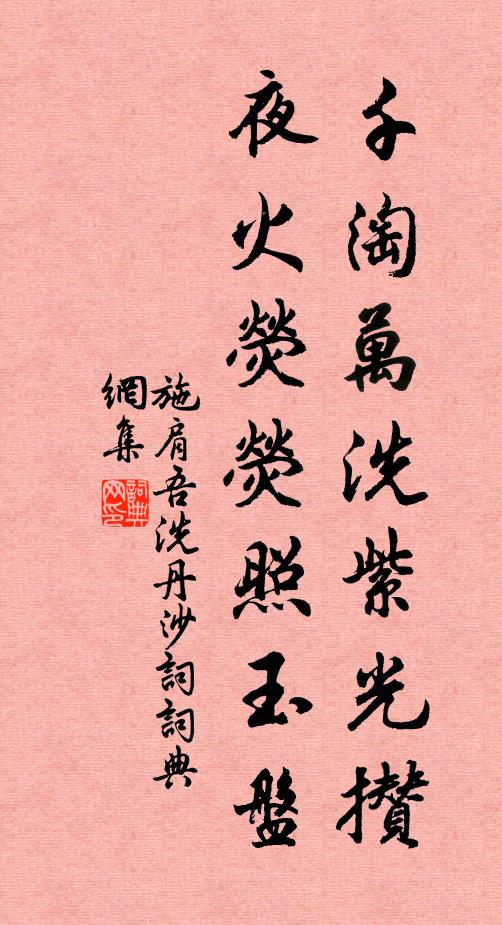 千淘萬洗紫光攢
夜火熒熒照玉盤
施肩吾洗丹沙詞詞典
網集
詞典网印